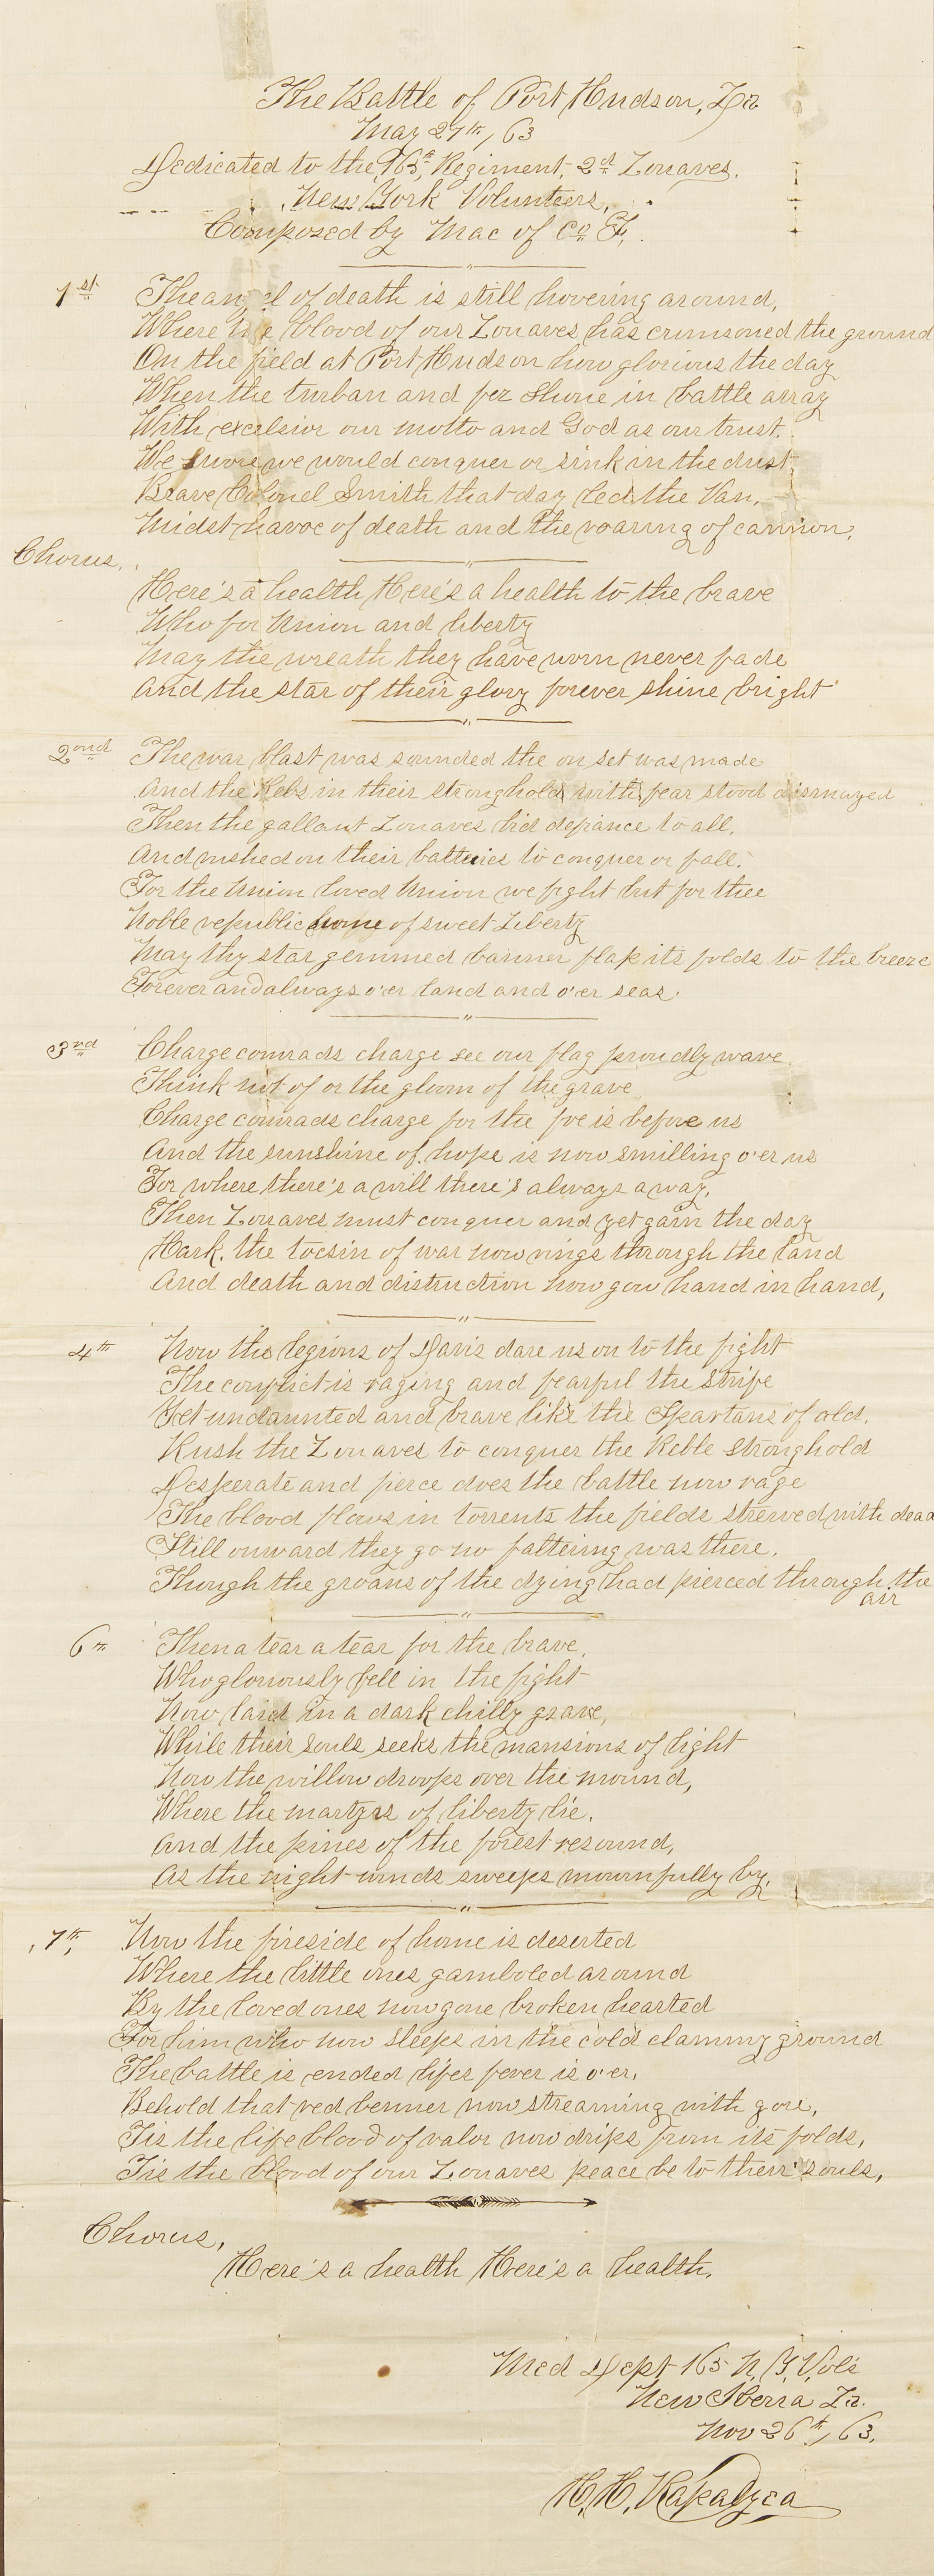 The Battle of Port Hudson, La
May 27th, / 63
Dedicated to the 165th, Regiment, 2nd Zouaves.
New York Volunteers,
Composed by Mac of Co F,
1st
The angel of death is still hovering around,
Where the blood of our Zouaves, has crimsoned the ground
On the field at Port Hudson how glorious the day
When the turban and fez shone in battle array
With excelsior our motto and God as our trust.
We swore we would conquer or sink in the dust,
Brave Colonel Smith that day led the Van,
Midst havoc of death and the roaring of cannon,
Chorus,
Here's a health Here's a health to the brave
Who for Union and liberty
May the wreath they have worn never fade
And the star of their glory forever shine bright
2ond
The war blast was sounded the on set was made
And the Rebs in their stronghold with fear stood dismayed
Then the gallant Zouaves bid defiance to all,
And rushed on their batteries to conquer or fall.
For the Union loved Union we fight but for thee
Noble republic home of sweet Liberty
May thy star gemmed banner flap its folds to the breeze
Forever and always o'er land and o'er seas.
3nd
Charge comrads charge see our flag proudly wave
Think not of or the gloom of the grave
Charge comrads charge for the foe is before us
And the sunshine of hope is now smilling o'er us
For where there's a will there's always a way,
Then Zouaves must conquer and yet gain the day
Hark. the tocsin of war now rings through the land
And death and distruction now gow hand in hand,
4th
Now the legions of Davis dare us on to the fight
The conflict is raging and fearful the strife
Yet undaunted and brave like the Spartans of old,
Rush the Zouaves to conquer the Reble stronghold
Desperate and fierce does the battle now rage
The blood flows in torrents the fields strewed with dead
Still onward they go no faltering was there,
Though the groans of the dying had pierced through the
air
6th
Then a tear a tear for the brave,
Who gloriously fell in the fight
Now laid in a dark chilly grave,
While their souls seeks the mansions of light
Now the willow droops over the mound,
Where the martyrs of liberty lie.
And the pines of the forest resound,
As the night winds sweeps mournfully by,
7th,
Now the fireside of home is deserted
Where the little ones gamboled around
By the loved ones now gone broken hearted
For him who now sleeps in the cold clammy ground
The battle is ended lifes fever is o'er,
Behold that red benner now streaming with gore,
Tis the life blood of valor now drips from its folds,
Tis the blood of our Zouaves peace be to their souls,
Chorus,
Here's a health Here's a health.
Med Dept 165 N. Y. Vols
New Iberra La.
Nov 26th, / 63,
H. H.